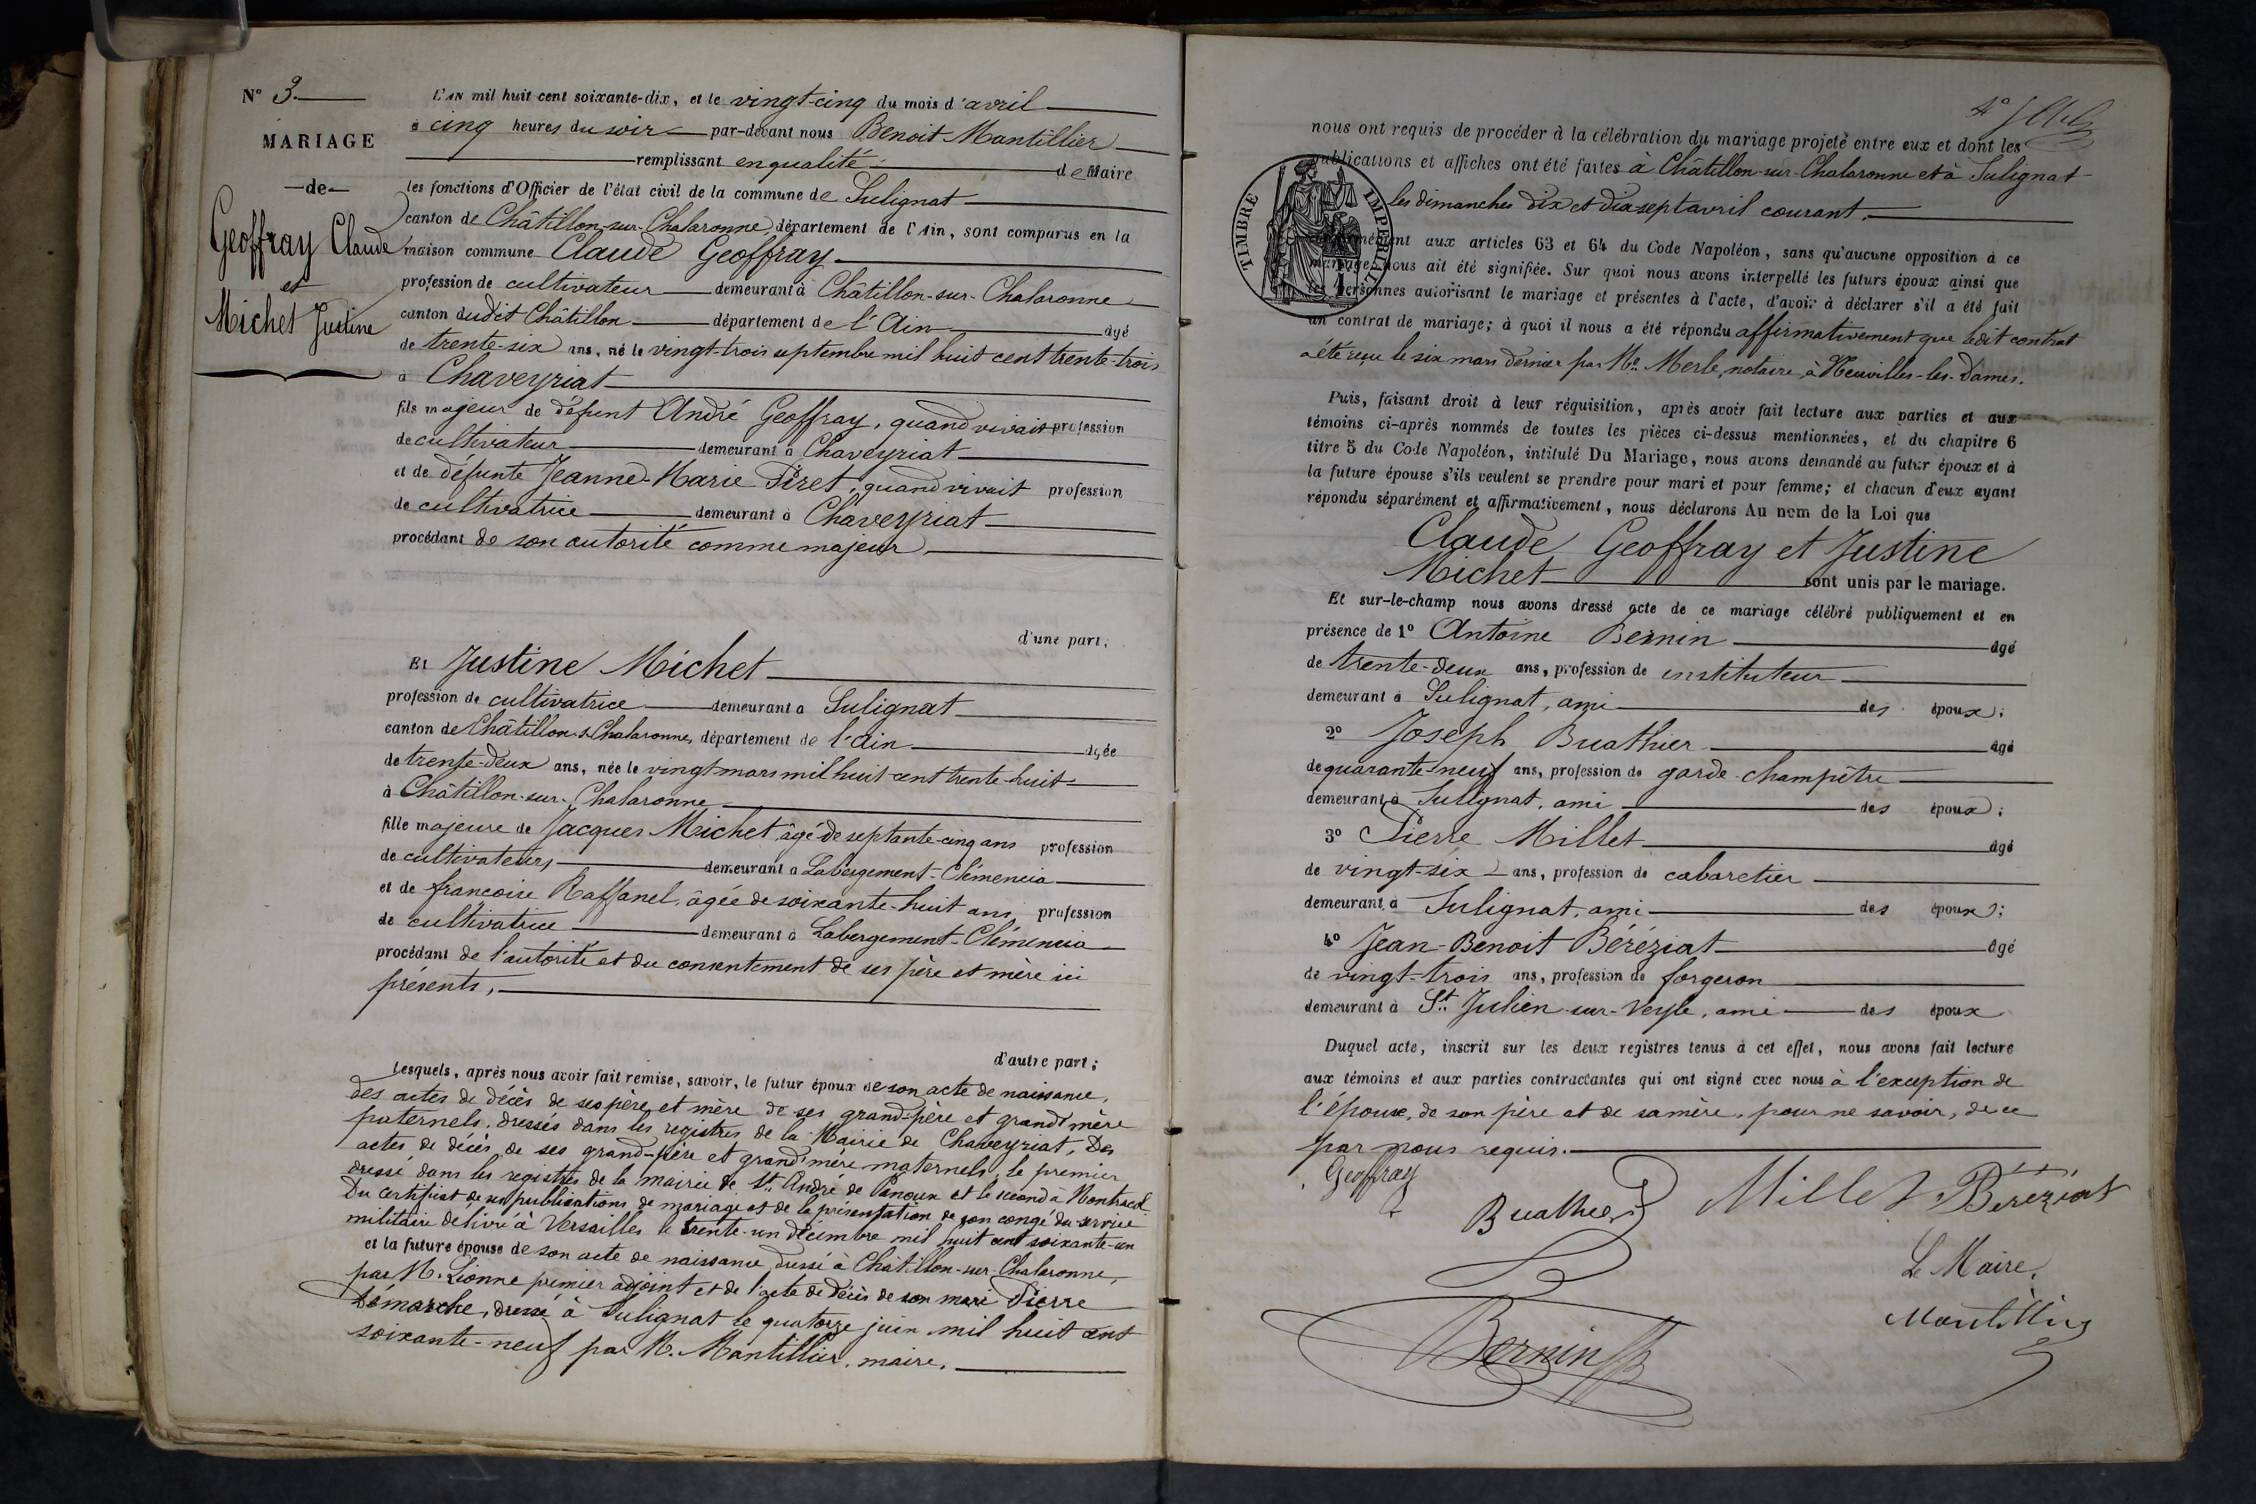 N° 3
MARIAGE
de
Geoffray Claude
et
Michet Justine
L'AN mil huit cent soixante-dix, et le vingt-cinq du mois d'avril
à cinq heures du soir par-devant nous Benoit Mantillier
remplissant en qualité de Maire
les fonctions d'Officier de l'état civil de la commune de Sulignat
canton de Châtillon-sur-Chalaronne, département de l'Ain, sont comparus en la
maison commune Claude Geoffray
profession de cultivateur demeurant à Châtillon-sur-Chalaronne
canton dudit Châtillon département de l'Ain âgé
de trente-six ans, né le vingt-trois septembre mil huit cent trente-trois
à Chaveyriat
fils majeur de défunt André Geoffray, quand vivait profession
de cultivateur demeurant à Chaveyriat
et de défunte Jeanne-Marie Piret, quand vivait profession
de cultivatrice demeurant à Chaveyriat
procédant de son autorité comme majeur
d'une part;
Et Justine Michet
profession de cultivatrice demeurant à Sulignat
canton de Châtillon-s-Chalaronne, département de l'Ain âgée
de trente-deux ans, née le vingt mars mil huit cent trente-huit
à Châtillon-sur-Chalaronne
fille majeure de Jacques Michet, âgé de septante-cinq ans profession
de cultivateur, demeurant à Labergement-Clémencia
et de françoise Raffanel, âgée de soixante-huit ans, profession
de cultivatrice demeurant à Labergement-Clémencia
procédant de l'autorité et du consentement de ses père et mère ici
présents,
d'autre part;
Lesquels, après nous avoir fait remise, savoir, le futur époux de son acte de naissance,
des actes de décès de ses père et mère de ses grand-père et grand'mère
paternels, dressés dans les registres de la Mairie de Chaveyriat, Des
actes de décès de ses grand-père et grand'mère maternels, le premier
dressé dans les registres de la mairie de St. André de Panoux et le second à Montracol
Du certificat de ses publications de mariage et de la présentation de son congé du service
militaire délivré à Versailles le trente-un décembre mil huit cent soixante-un
et la future épouse de son acte de naissance dressé à Châtillon-sur-Chalaronne,
par M. Lionne premier adjoint et de l'acte de décès de son mari Pierre
Démarche, dressé à Sulignat le quatorze juin mil huit cent
soixante-neuf par M. Mantillier, maire.
nous ont requis de procéder à la célébration du mariage projeté entre eux et dont les
publications et affiches ont été faites à Châtillon-sur-Chalaronne et à Sulignat
les dimanches dix et dix-sept avril courant.
TIMBRE IMPERIAL
conformément aux articles 63 et 64 du Code Napoléon, sans qu'aucune opposition à ce
mariage nous ait été signifiée. Sur quoi nous avons interpellé les futurs époux ainsi que
les personnes autorisant le mariage et présentes à l'acte, d'avoir à déclarer s'il a été fait
un contrat de mariage; à quoi il nous a été répondu affirmativement que ledit contrat
a été reçu le six mars dernier par Me. Merle, notaire à Neuville-les-Dames.
Puis, faisant droit à leur réquisition, après avoir fait lecture aux parties et aux
témoins ci-après nommés de toutes les pièces ci-dessus mentionnées, et du chapitre 6
titre 5 du Code Napoléon, intitulé Du Mariage, nous avons demandé au futur époux et à
la future épouse s'ils veulent se prendre pour mari et pour femme; et chacun d'eux ayant
répondu séparément et affirmativement, nous déclarons Au nom de la Loi que
Claude Geoffray et Justine
Michet sont unis par le mariage.
Et sur-le-champ nous avons dressé acte de ce mariage célébré publiquement et en
présence de 1° Antoine Bernin âgé
de trente-deux ans, profession de instituteur
demeurant à Sulignat, ami des époux;
2° Joseph Buathier âgé
de quarante-neuf ans, profession de garde-champêtre
demeurant à Sulignat, ami des époux;
3° Pierre Millet âgé
de vingt-six ans, profession de cabaretier
demeurant à Sulignat, ami des époux;
4° Jean-Benoit Béréziat âgé
de vingt-trois ans, profession de forgeron
demeurant à St. Julien-sur-Veyle, ami des époux
Duquel acte, inscrit sur les deux registres tenus à cet effet, nous avons fait lecture
aux témoins et aux parties contractantes qui ont signé avec nous à l'exception de
l'épouse, de son père et de sa mère, pour ne savoir, de ce
par nous requis.
Geoffray
Buathier Millet Béréziat
Le Maire,
Bernin Mantillier